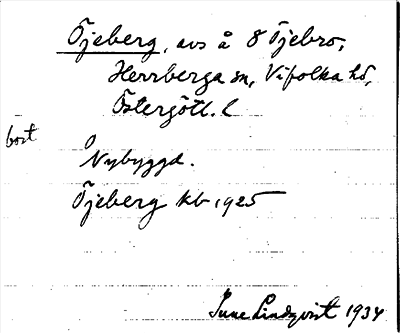 Öjeberg, avs å 8 Öjebro,
Herrberga sn, Vifolka hd,
Östergötl. l
bort
Nybyggd.
Öjeberg kb 1925
Sune Lindqvist 1934